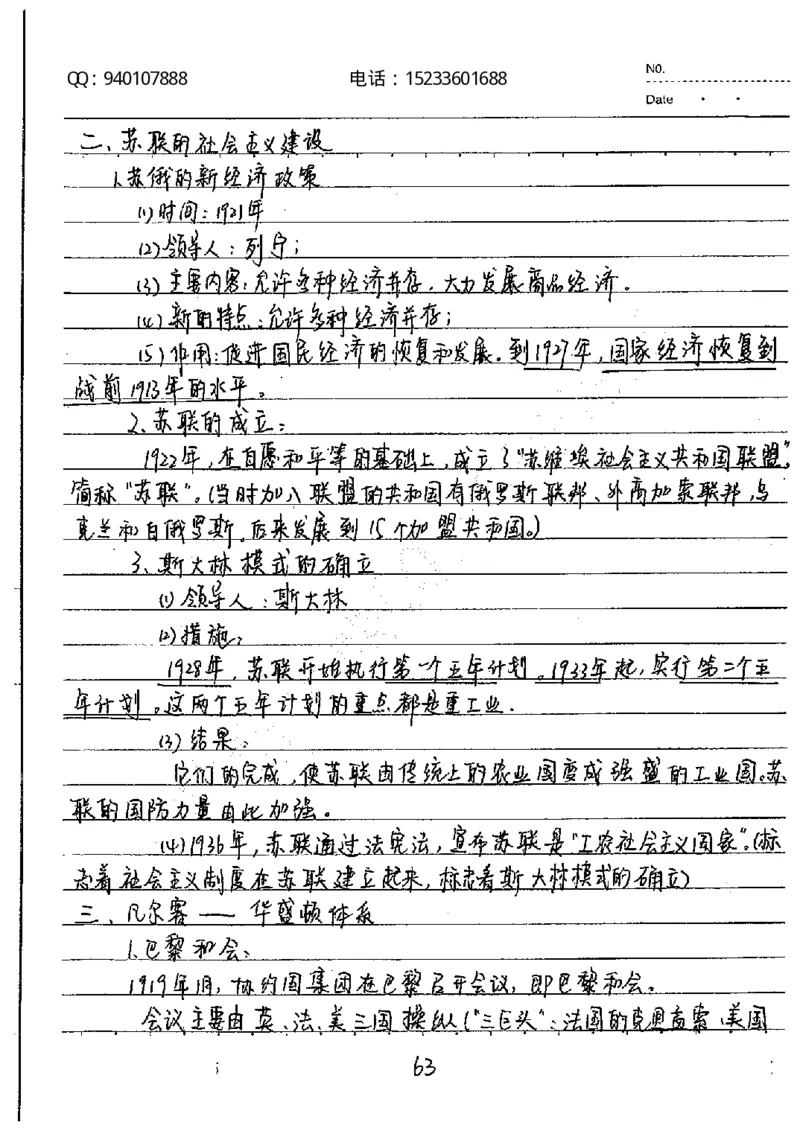 QQ：940107888 电话：15233601688 No.
Date
二、苏联的社会主义建设
1.苏俄的新经济政策
(1)时间：1921年
(2)领导人：列宁；
(3)主要内容：允许多种经济并存，大力发展商品经济。
(4)新的特点：允许多种经济并存；
(5)作用：促进国民经济的恢复和发展。到1927年，国家经济恢复到
战前1913年的水平。
2.苏联的成立：
1922年，在自愿和平等的基础上，成立了“苏维埃社会主义共和国联盟”，
简称“苏联”。(当时加入联盟的共和国有俄罗斯联邦、外高加索联邦，乌
克兰和白俄罗斯，后来发展到15个加盟共和国。)
3、斯大林模式的确立
(1)领导人：斯大林
(2)措施：
1928年，苏联开始执行第一个五年计划。1933年起，实行第二个五
年计划。这两个五年计划的重点都是重工业.
(3)结果：
它们的完成，使苏联由传统上的农业国变成强盛的工业国。苏
联的国防力量由此加强。
(4)1936年，苏联通过法宪法，宣布苏联是“工农社会主义国家”。(标
志着社会主义制度在苏联建立起来，标志着斯大林模式的确立)
三、凡尔赛——华盛顿体系
1.巴黎和会：
1919年1月，协约国集团在巴黎召开会议，即巴黎和会。
会议主要由英、法、美三国操纵(“三巨头”：法国的克里孟梭、美国
63